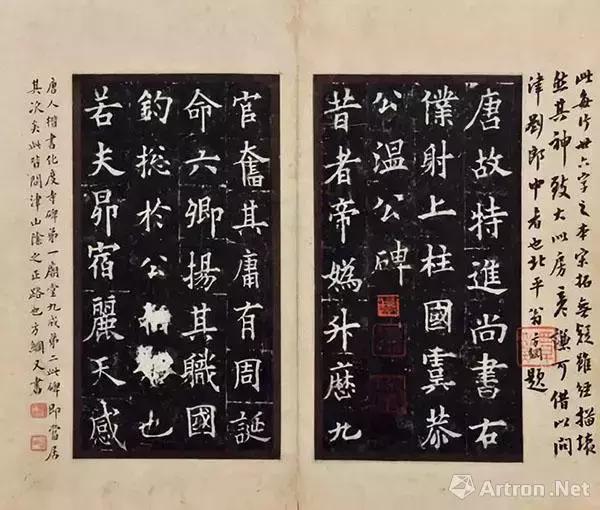 此每行卅六字之本宋拓無疑雖經描
然其神致大似房彥謙可借以問
津劉郎中者也北平翁方綱題
唐故特進尚書右
僕射上柱國虞恭
公溫公碑
昔者帝媯升歷九
官奮其庸有周誕
命六卿揚其職國
鈞捴於公也
若夫昴宿麗天感
唐人楷書化度寺碑第一廟堂九成第二此碑即當居
其次矣此皆問津山陰之正路也方綱又書
Artron.Net